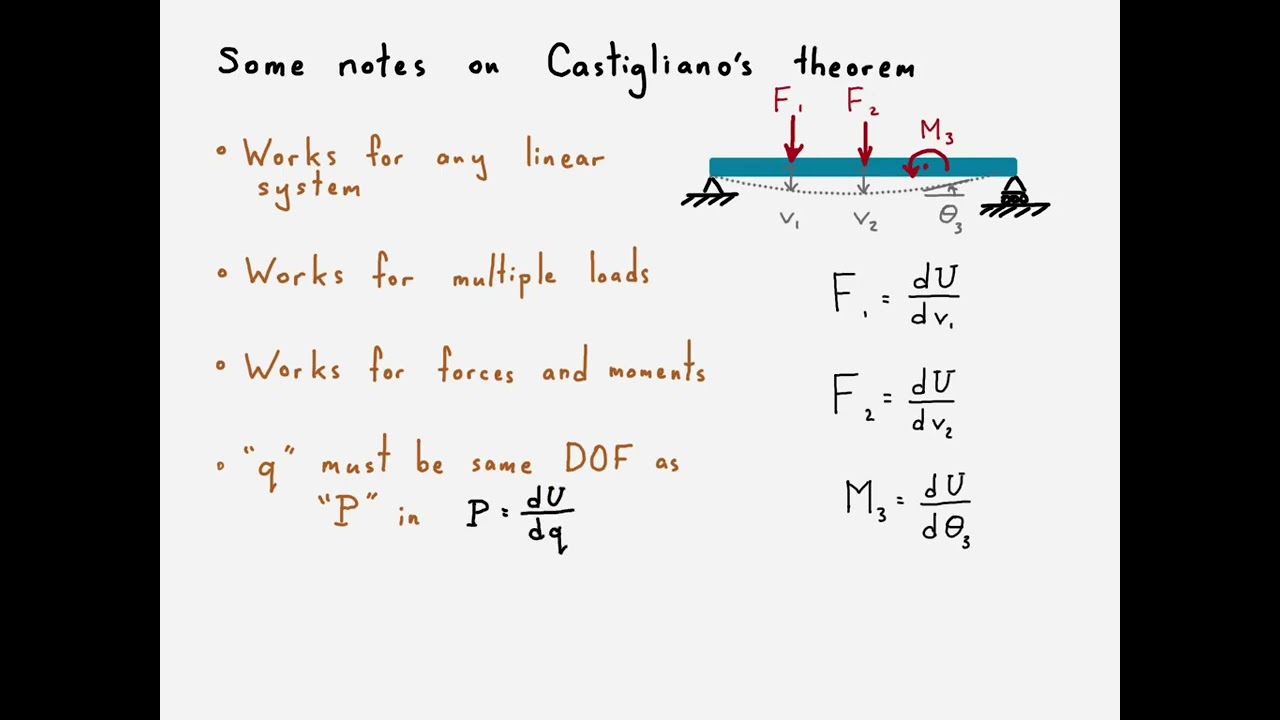 Some notes on Castigliano's theorem
F₁ F₂ M₃
v₁ v₂ θ₃
• Works for any linear
system
• Works for multiple loads
• Works for forces and moments
• "q" must be same DOF as
"P" in P = dU/dq
F₁ = dU/dv₁
F₂ = dU/dv₂
M₃ = dU/dθ₃